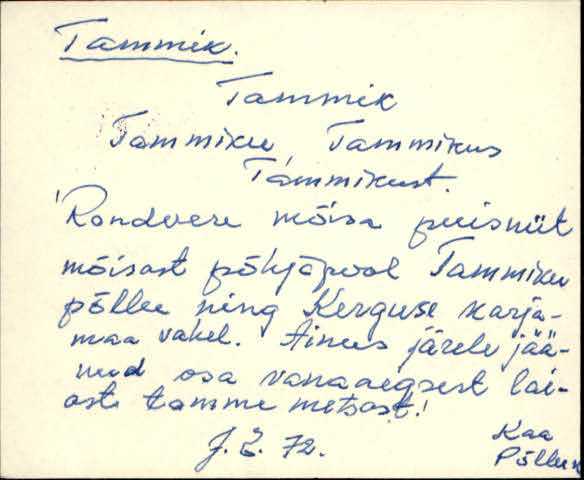 Tammik.
Tammik
Tammiku Tammikus
Tammikust.
Rondvere mõisa puisniit
mõisast põhjapool Tammiku
põllu ning Kerguse karja-
maa vahel. Ainus järele jää-
nud osa vanaaegsest lai-
ast tamme metsast!
J. E. 72.
Kaa
Põllu